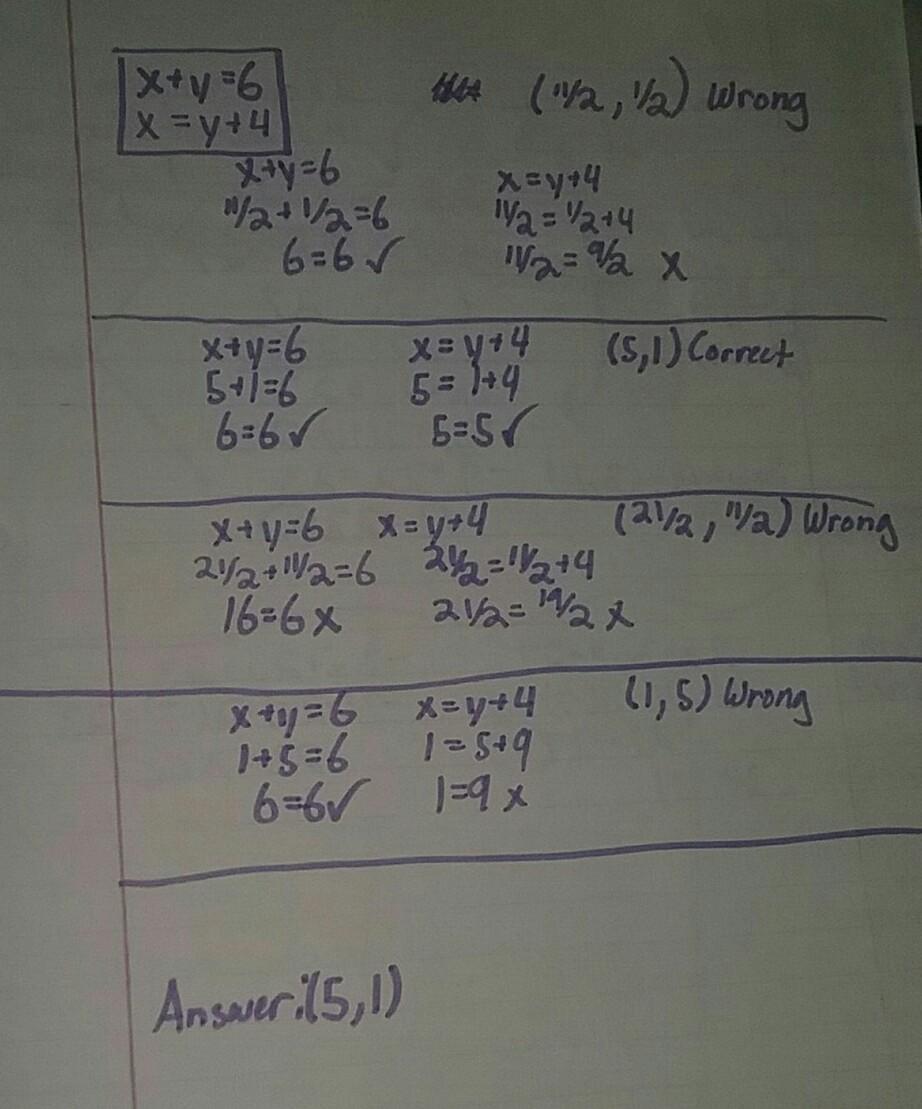 x+y=6
x=y+4
(11/2, 1/2) Wrong
x+y=6
11/2+1/2=6
6=6✓
x=y+4
11/2=1/2+4
11/2=9/2 x
x+y=6
5+1=6
6=6✓
x=y+4
5=1+4
5=5✓
(5,1) Correct
x+y=6
21/2+11/2=6
16=6 x
x=y+4
21/2=11/2+4
21/2=19/2 x
(21/2, 11/2) Wrong
x+y=6
1+5=6
6=6✓
x=y+4
1=5+9
1=9 x
(1,5) Wrong
Answer:(5,1)